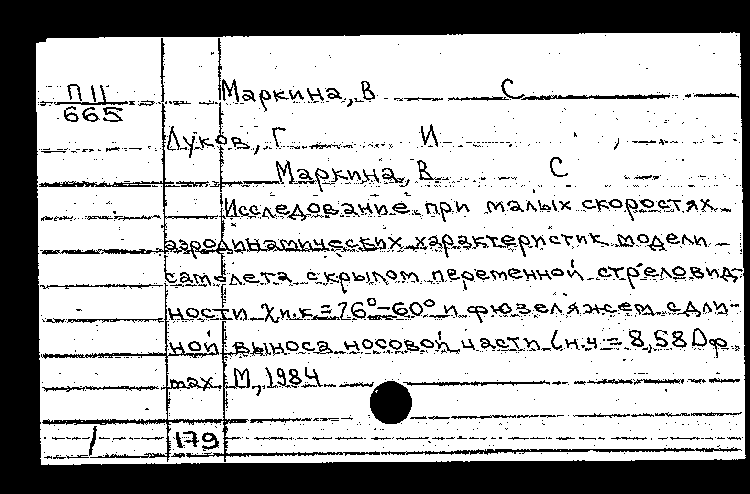 П II Маркина, В С
665
Луков, Г И
Маркина, В С
Исследование при малых скоростях
аэродинамических характеристик модели
самолета с крылом переменной стреловид-
ности χп.к = 76°-60° и фюзеляжем с дли-
ной выноса носовой части lн.ч = 8,58 Dф
max М, 1984
1 179